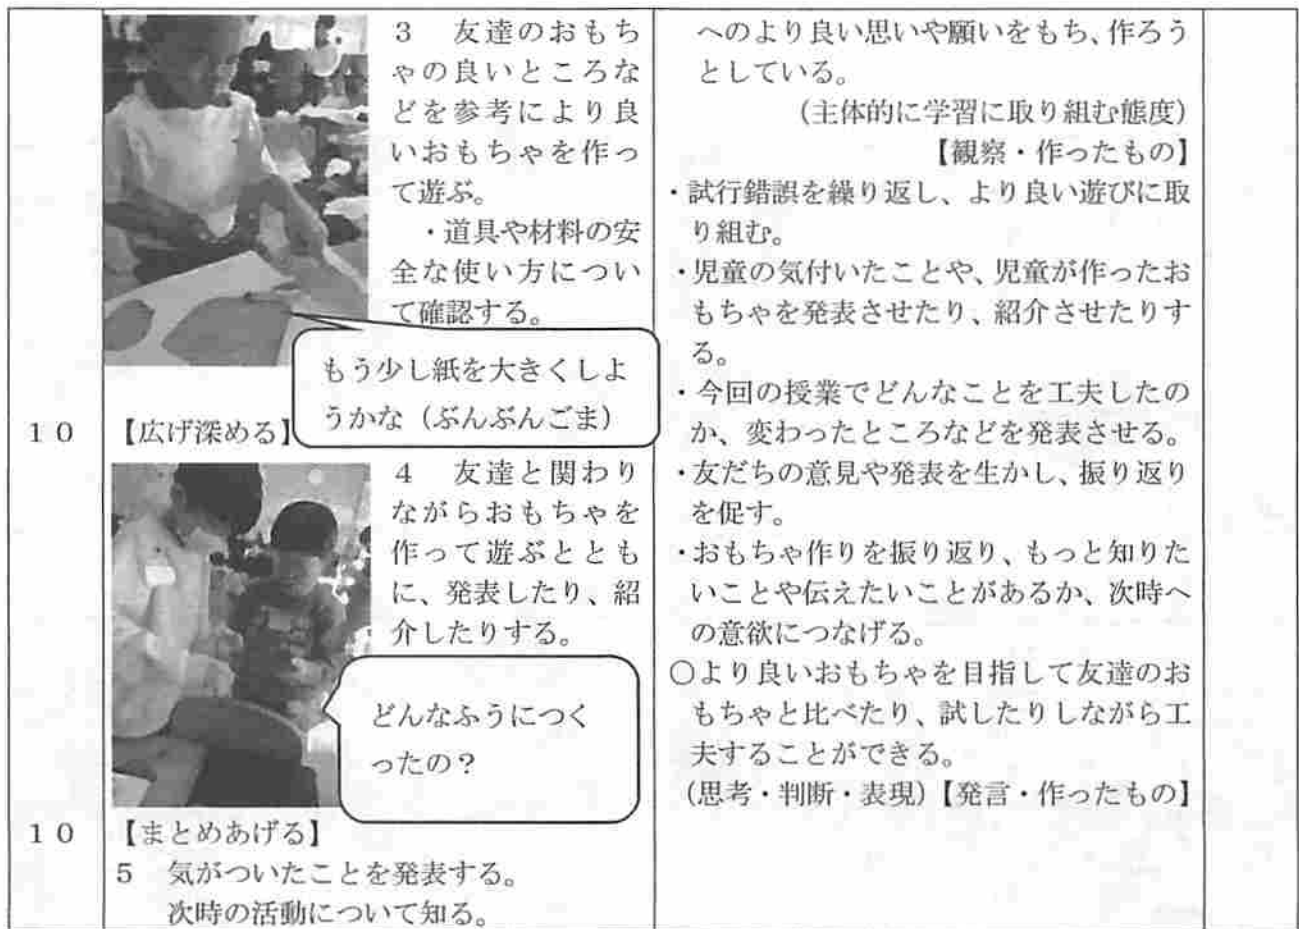 3　友達のおもち
ゃの良いところな
どを参考により良
いおもちゃを作っ
て遊ぶ。
・道具や材料の安
全な使い方につい
て確認する。
もう少し紙を大きくしよ
うかな（ぶんぶんごま）
10
【広げ深める】
4　友達と関わり
ながらおもちゃを
作って遊ぶととも
に、発表したり、紹
介したりする。
どんなふうにつく
ったの？
10
【まとめあげる】
5　気がついたことを発表する。
次時の活動について知る。
へのより良い思いや願いをもち、作ろう
としている。
（主体的に学習に取り組む態度）
【観察・作ったもの】
・試行錯誤を繰り返し、より良い遊びに取
り組む。
・児童の気付いたことや、児童が作ったお
もちゃを発表させたり、紹介させたりす
る。
・今回の授業でどんなことを工夫したの
か、変わったところなどを発表させる。
・友だちの意見や発表を生かし、振り返り
を促す。
・おもちゃ作りを振り返り、もっと知りた
いことや伝えたいことがあるか、次時へ
の意欲につなげる。
○より良いおもちゃを目指して友達のお
もちゃと比べたり、試したりしながら工
夫することができる。
（思考・判断・表現）【発言・作ったもの】